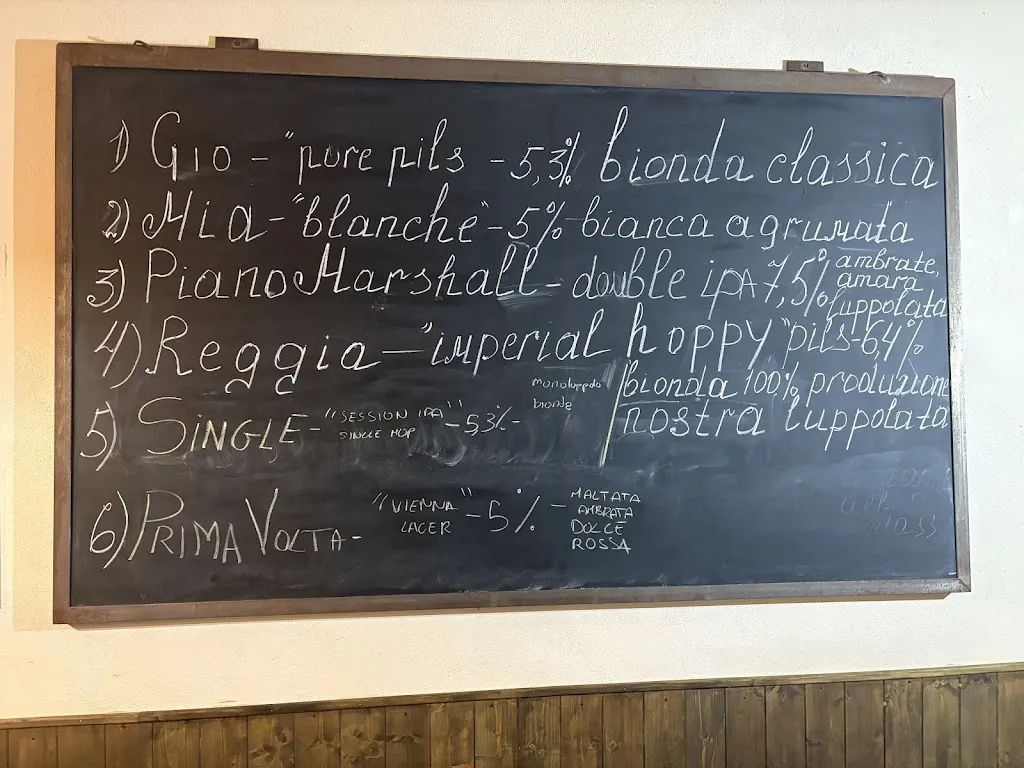 1) Gio - "pure pils - 5,3% bionda classica
2) Mia - "blanche" - 5% bianca agrumata
3) Piano Marshall - double ipA 7,5% ambrate,
amara
luppolata
4) Reggia - "imperial hoppy "pils - 6,4%
bionda 100% produzion
nostra luppolata
5) SINGLE - "SESSION IPA" - 5,3% - monoluppolo
SINGLE HOP
bionde
6) PRIMA VOLTA - "VIENNA" - 5% - MALTATA
LAGER
AMBRATA
DOLCE
ROSSA